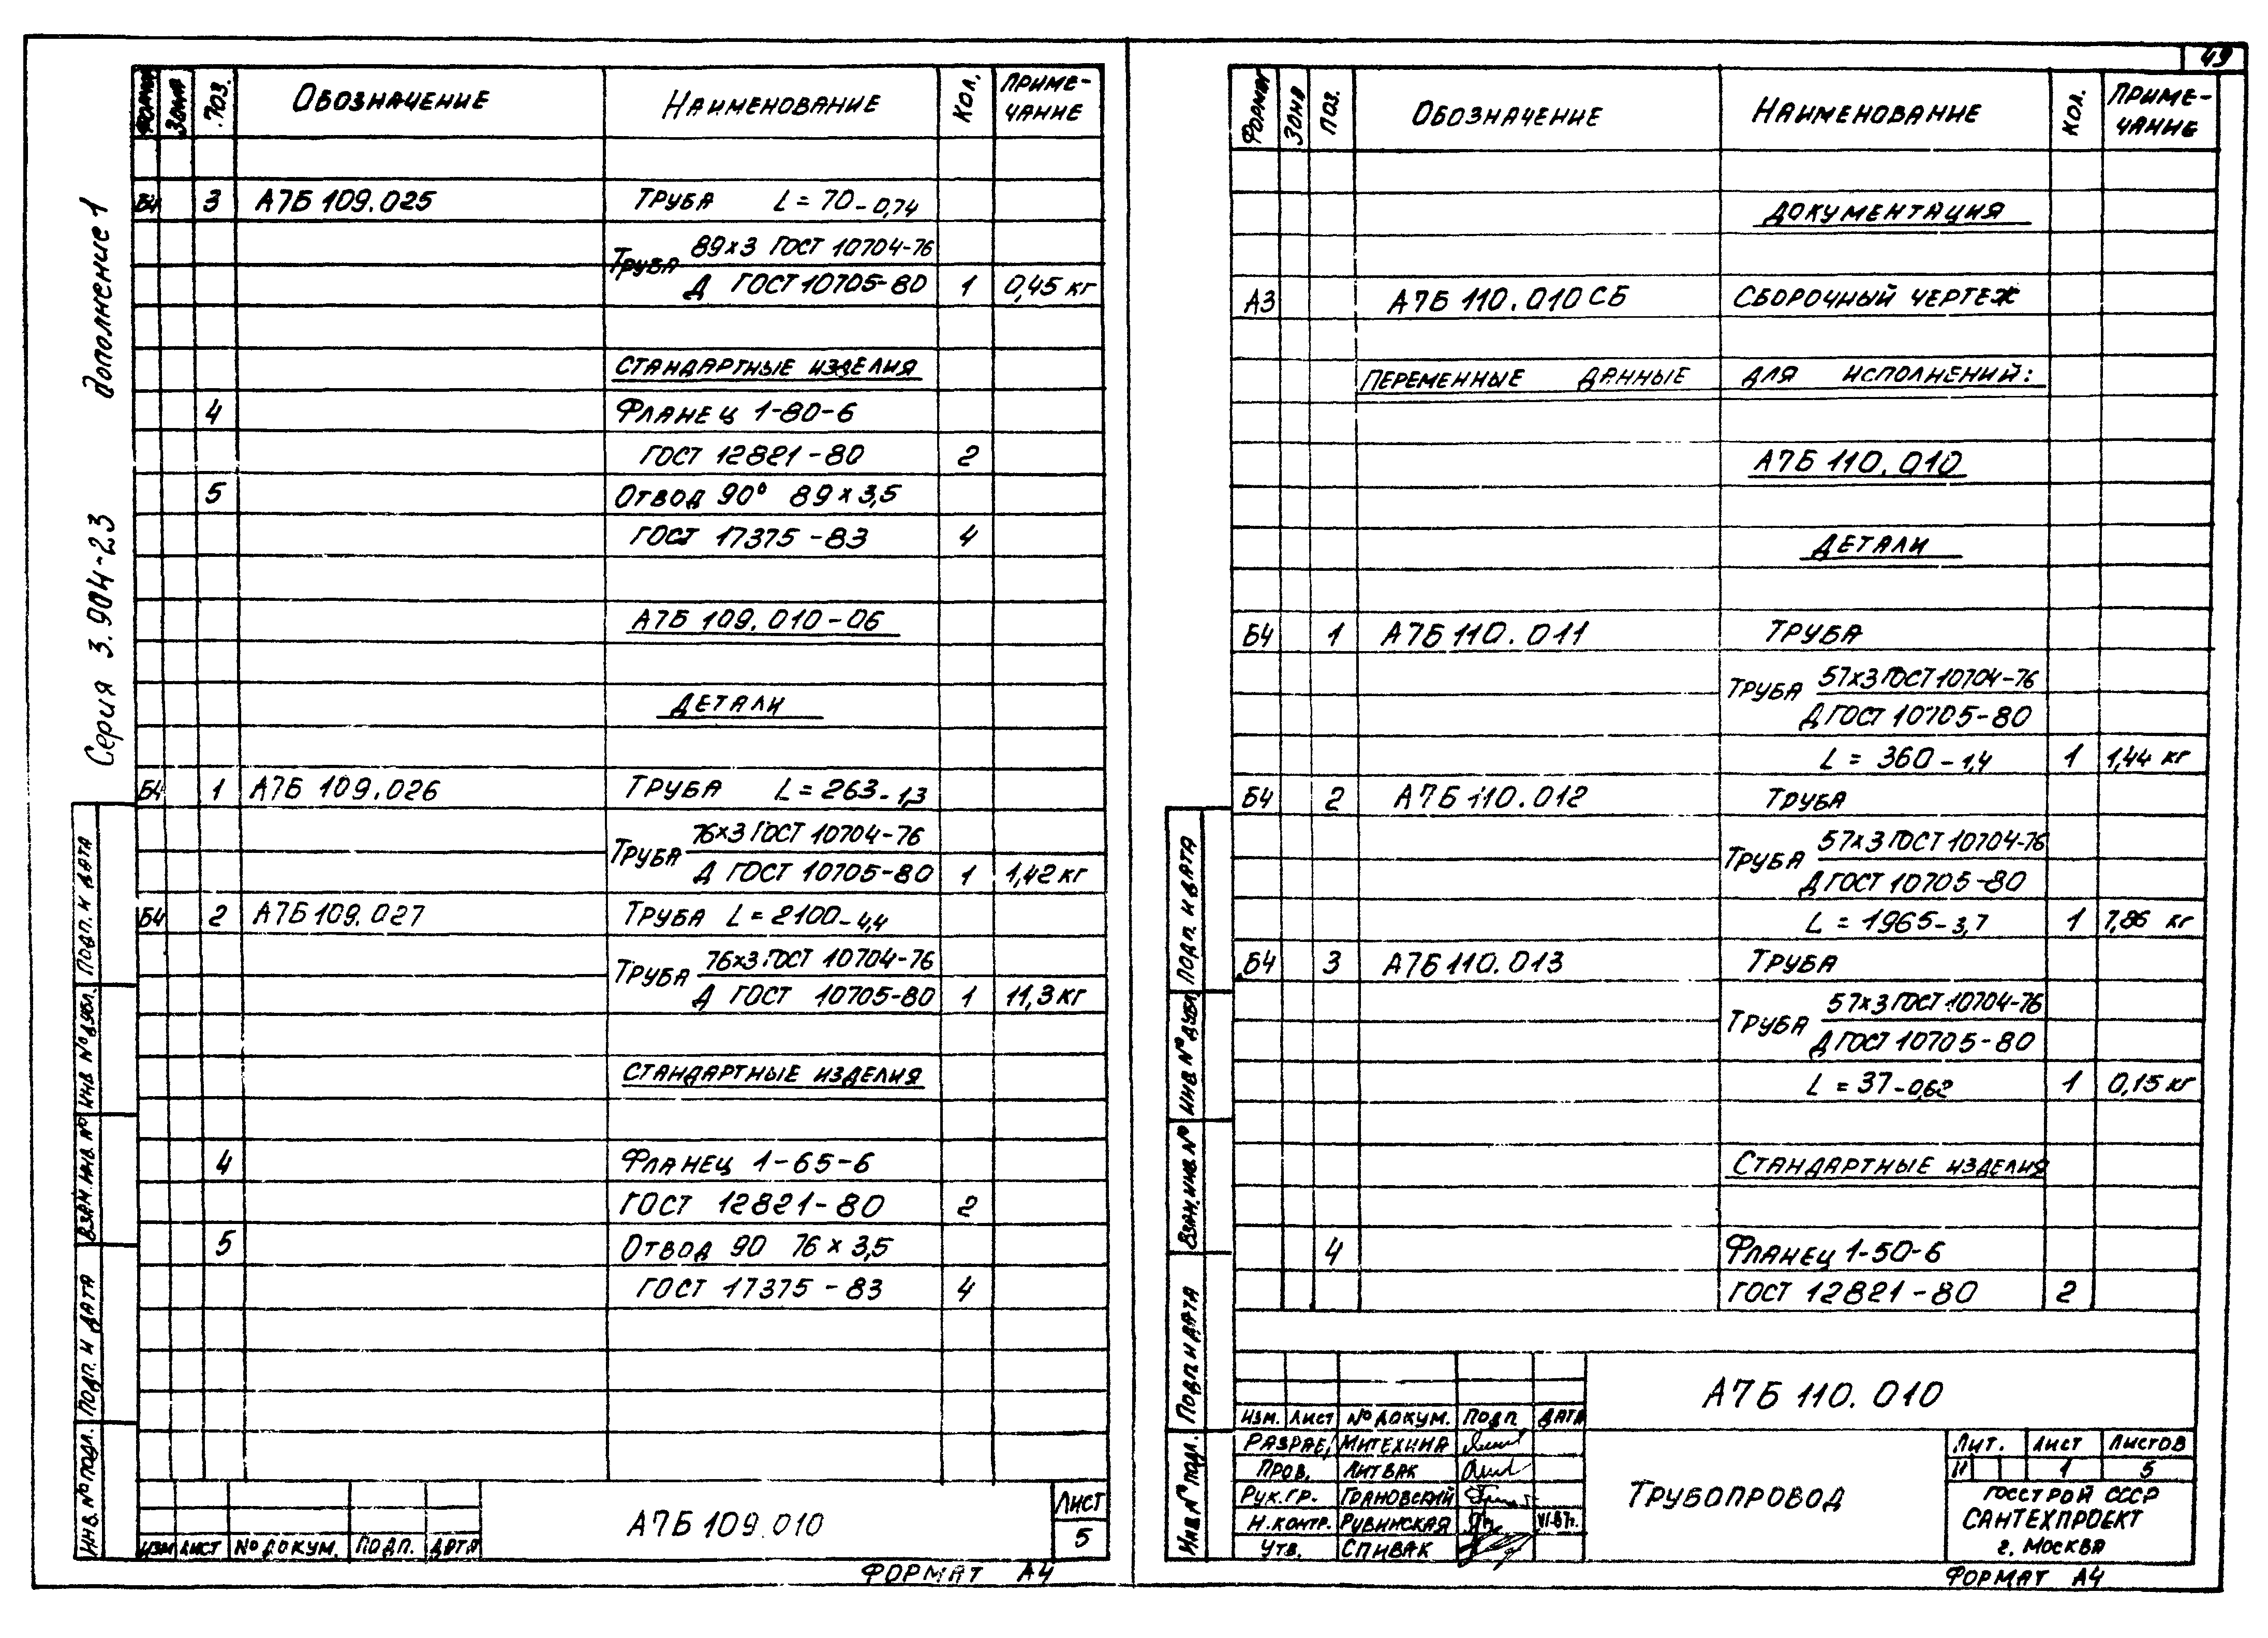 49
Серия 3.904-23 дополнение 1
Формат Зона Поз. Обозначение Наименование Кол. Примечание
Б4 3 А7Б 109.025 Труба L = 70-0,74
Труба 89х3 ГОСТ 10704-76
Д ГОСТ 10705-80 1 0,45 кг
Стандартные изделия
4 Фланец 1-80-6
ГОСТ 12821-80 2
5 Отвод 90° 89х3,5
ГОСТ 17375-83 4
А7Б 109.010-06
Детали
Б4 1 А7Б 109.026 Труба L = 263-1,3
Труба 76х3 ГОСТ 10704-76
Д ГОСТ 10705-80 1 1,42 кг
Б4 2 А7Б 109.027 Труба L = 2100-4,4
Труба 76х3 ГОСТ 10704-76
Д ГОСТ 10705-80 1 11,3 кг
Стандартные изделия
4 Фланец 1-65-6
ГОСТ 12821-80 2
5 Отвод 90 76х3,5
ГОСТ 17375-83 4
Инв. № подл. Подп. и дата Взам. инв. № Инв № дубл. Подп. и дата
Изм Лист № докум. Подп. Дата
А7Б 109.010
Лист
5
Формат А4
Формат Зона Поз. Обозначение Наименование Кол. Примечание
Документация
А3 А7Б 110.010 СБ Сборочный чертеж
Переменные данные для исполнений:
А7Б 110.010
Детали
Б4 1 А7Б 110.011 Труба
Труба 57х3 ГОСТ 10704-76
Д ГОСТ 10705-80
L = 360-1,4 1 1,44 кг
Б4 2 А7Б 110.012 Труба
Труба 57х3 ГОСТ 10704-76
Д ГОСТ 10705-80
L = 1965-3,7 1 7,86 кг
Б4 3 А7Б 110.013 Труба
Труба 57х3 ГОСТ 10704-76
Д ГОСТ 10705-80
L = 37-0,62 1 0,15 кг
Стандартные изделия
4 Фланец 1-50-6
ГОСТ 12821-80 2
Инв № подл. Подп. и дата Взам. инв № Инв № дубл Подп. и дата
А7Б 110.010
Изм. Лист № докум. Подп Дата
Разраб. Митехина
Пров. Литвак
Рук.гр. Грановский
Н.контр. Рувинская VI.87г.
Утв. Спивак
Трубопровод
Лит. Лист Листов
И 1 5
Госстрой СССР
Сантехпроект
г. Москва
Формат А4